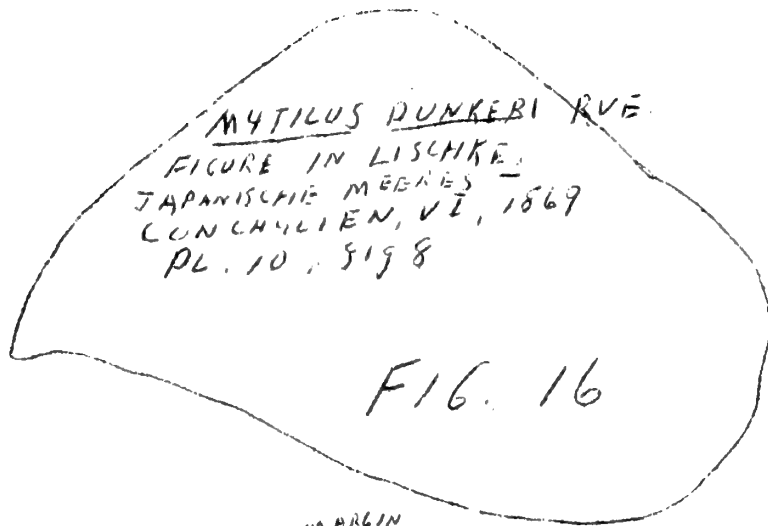 MYTILUS DUNKERI RVE.
FIGURE IN LISCHKE,
JAPANISCHE MEERES
CONCHYLIEN, VI, 1869
PL. 10, FIG 8
FIG. 16
MARGIN